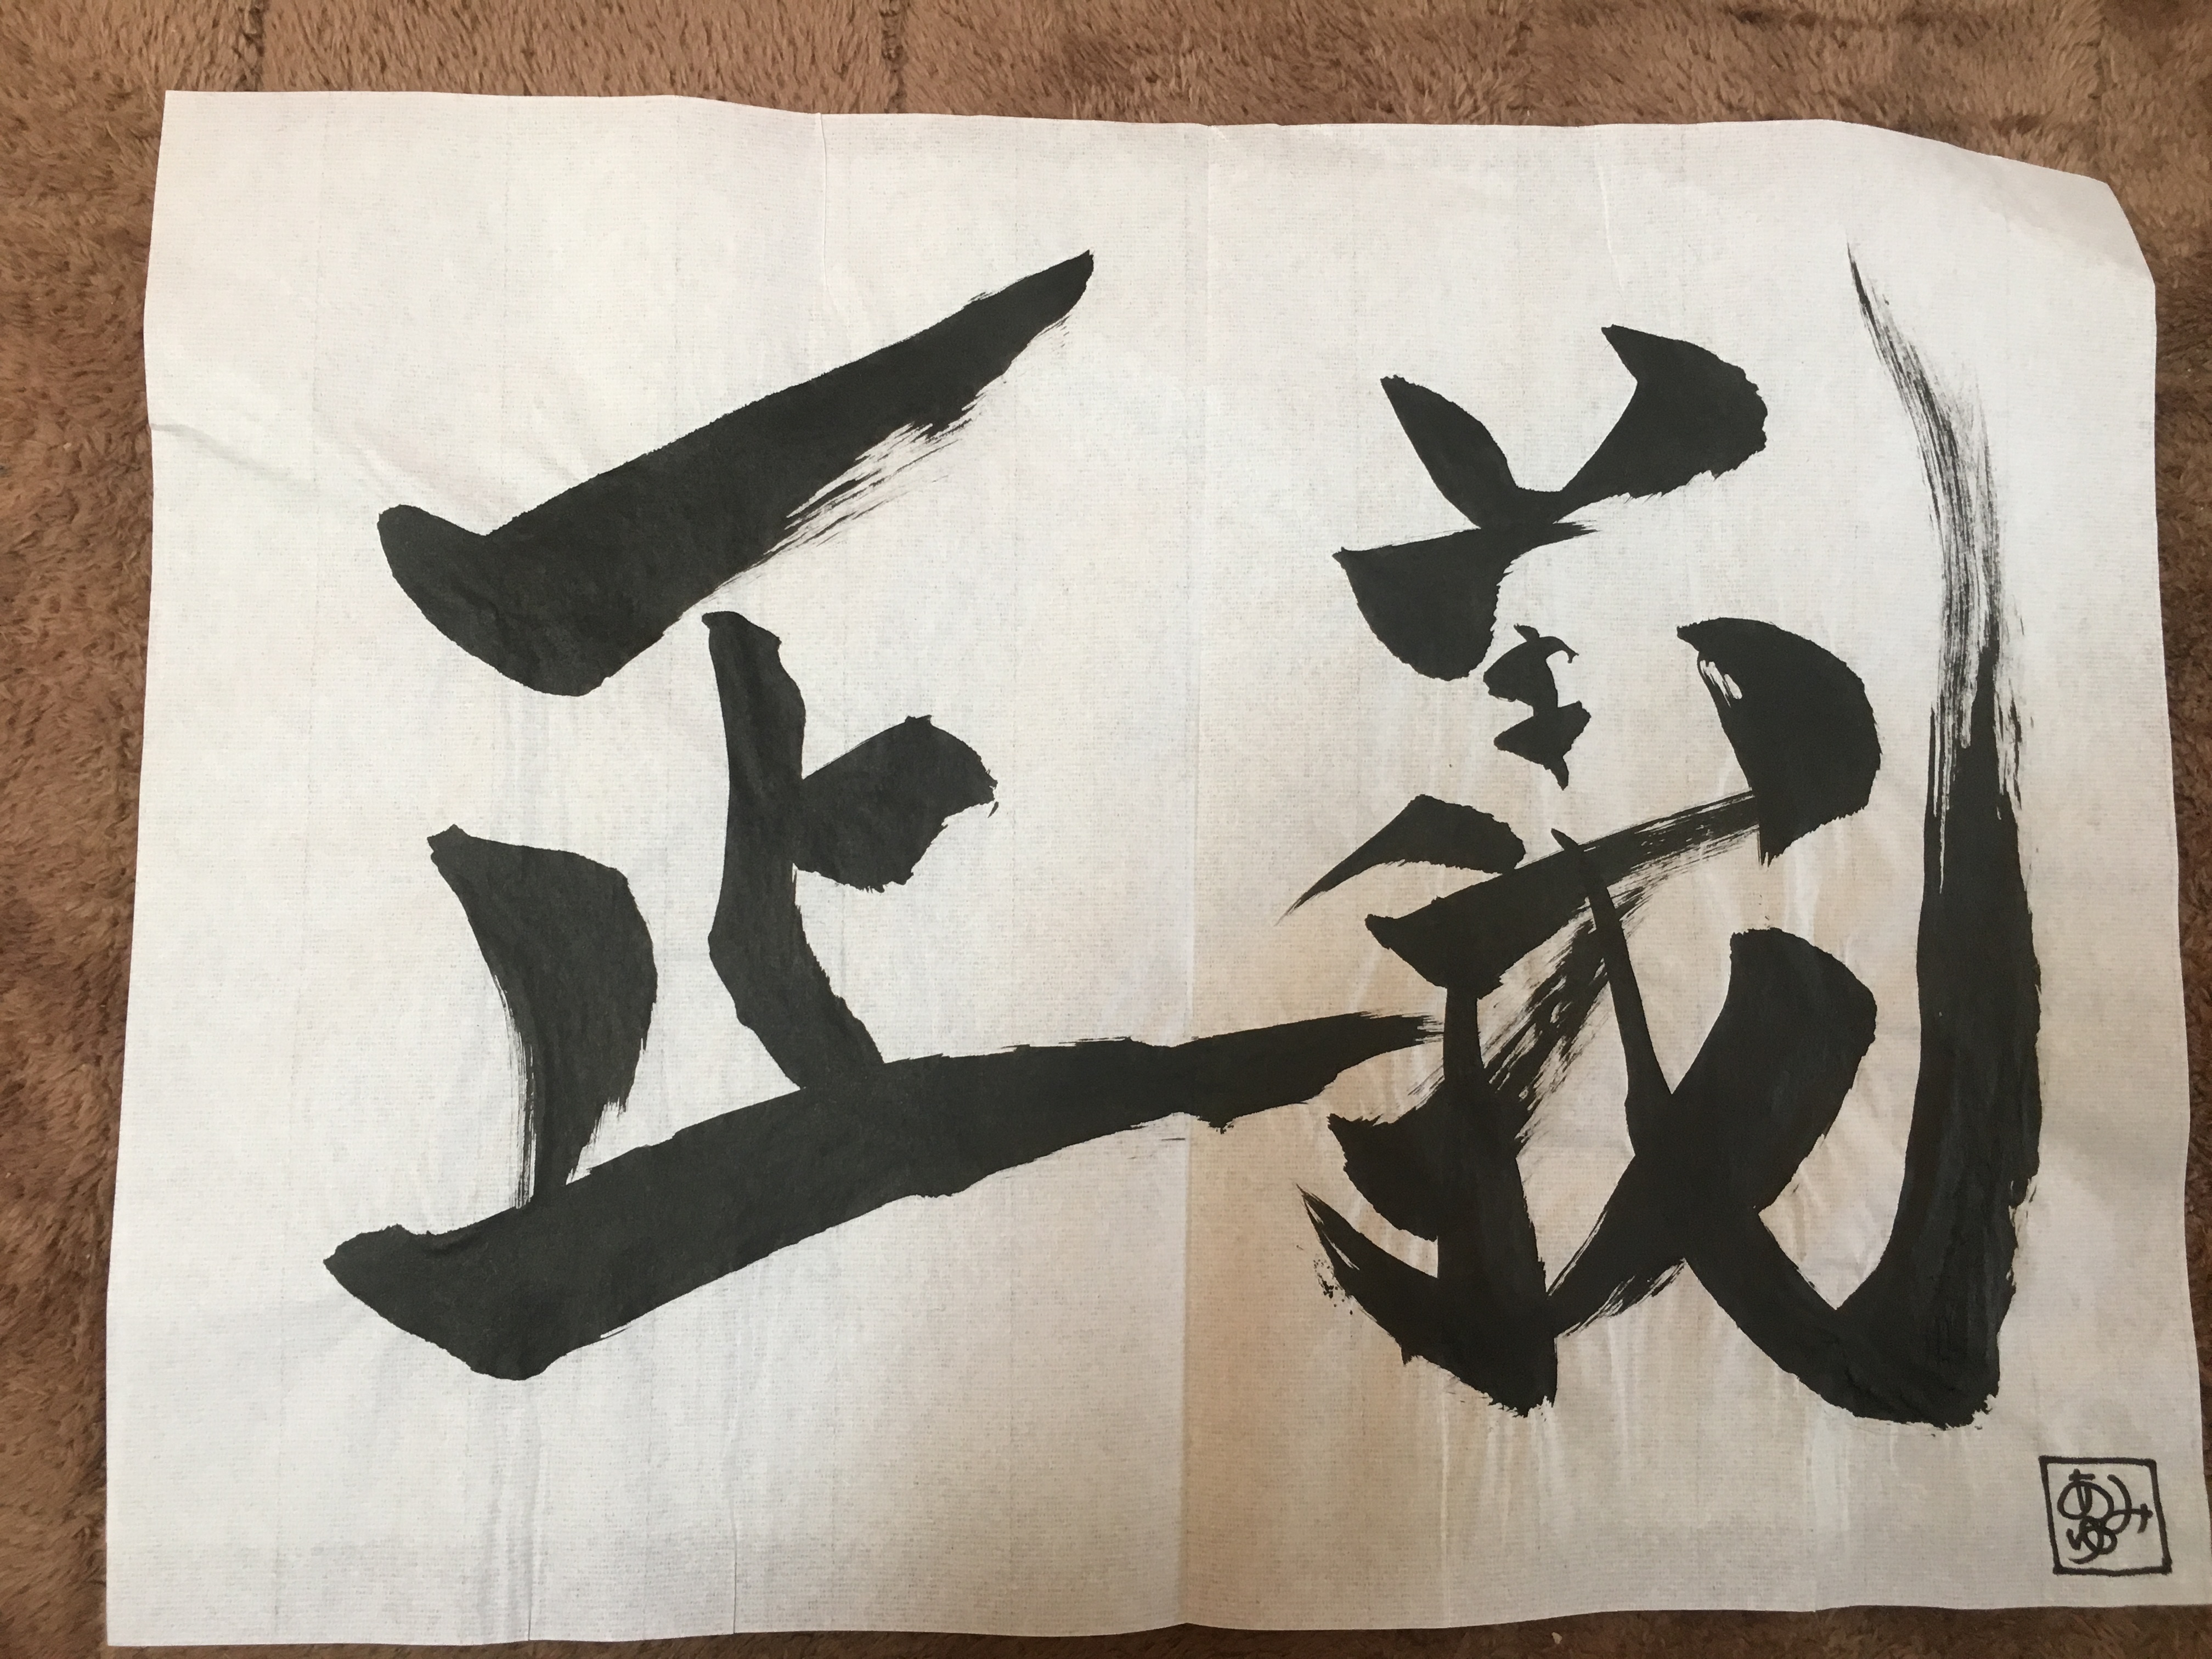 正義
あゆみ